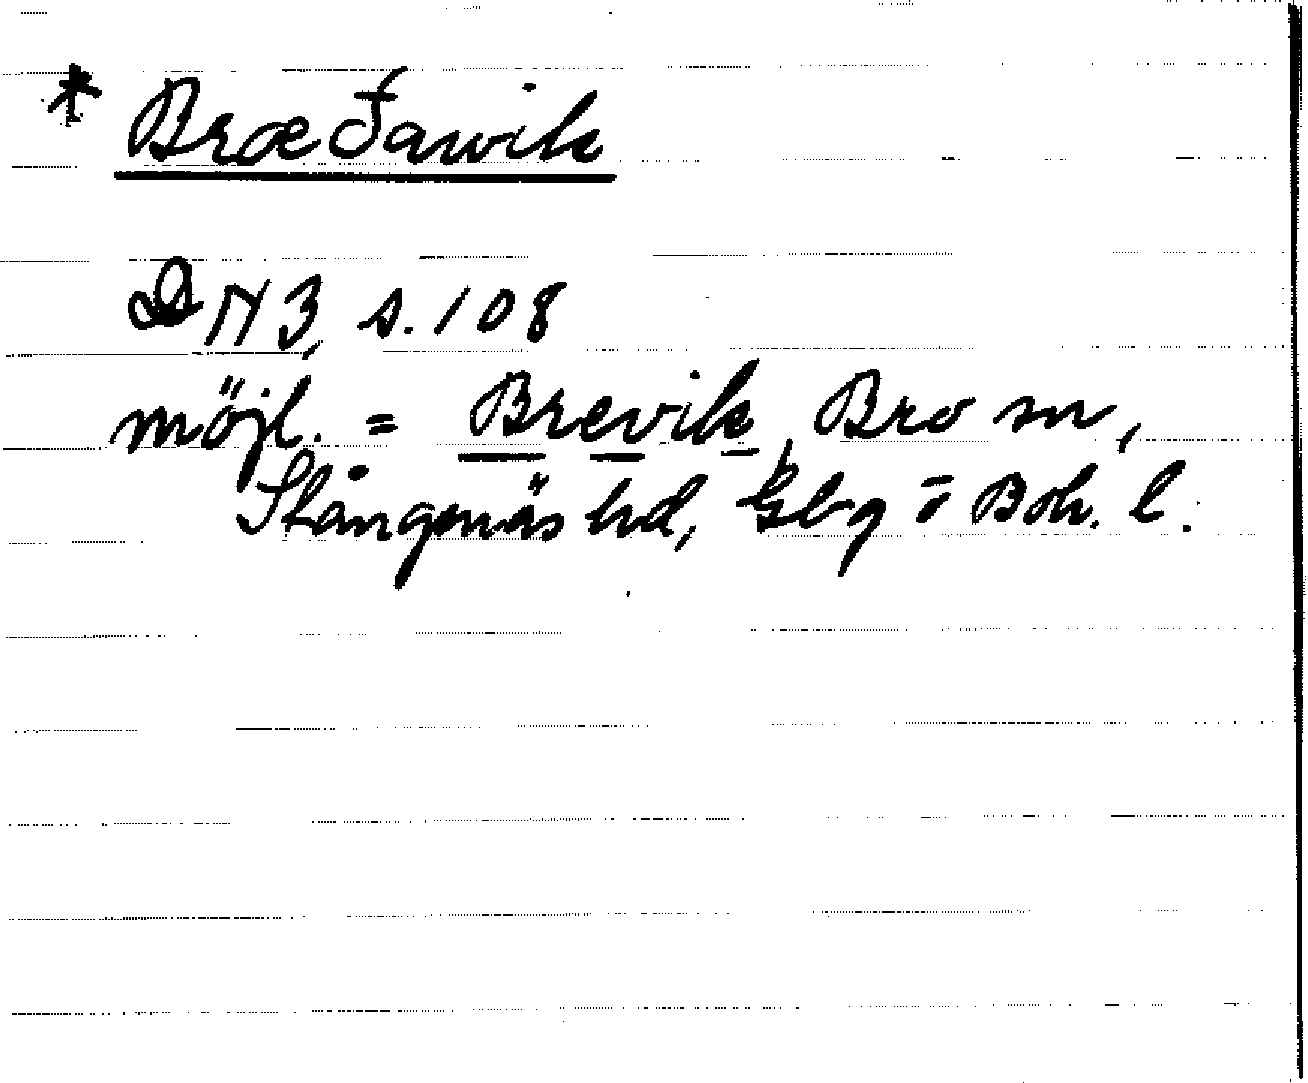 * Bræðawik
DN 3, s. 108
möjl. = Brevik, Bro sn,
Stångenäs hd, Gbg o Boh. l.